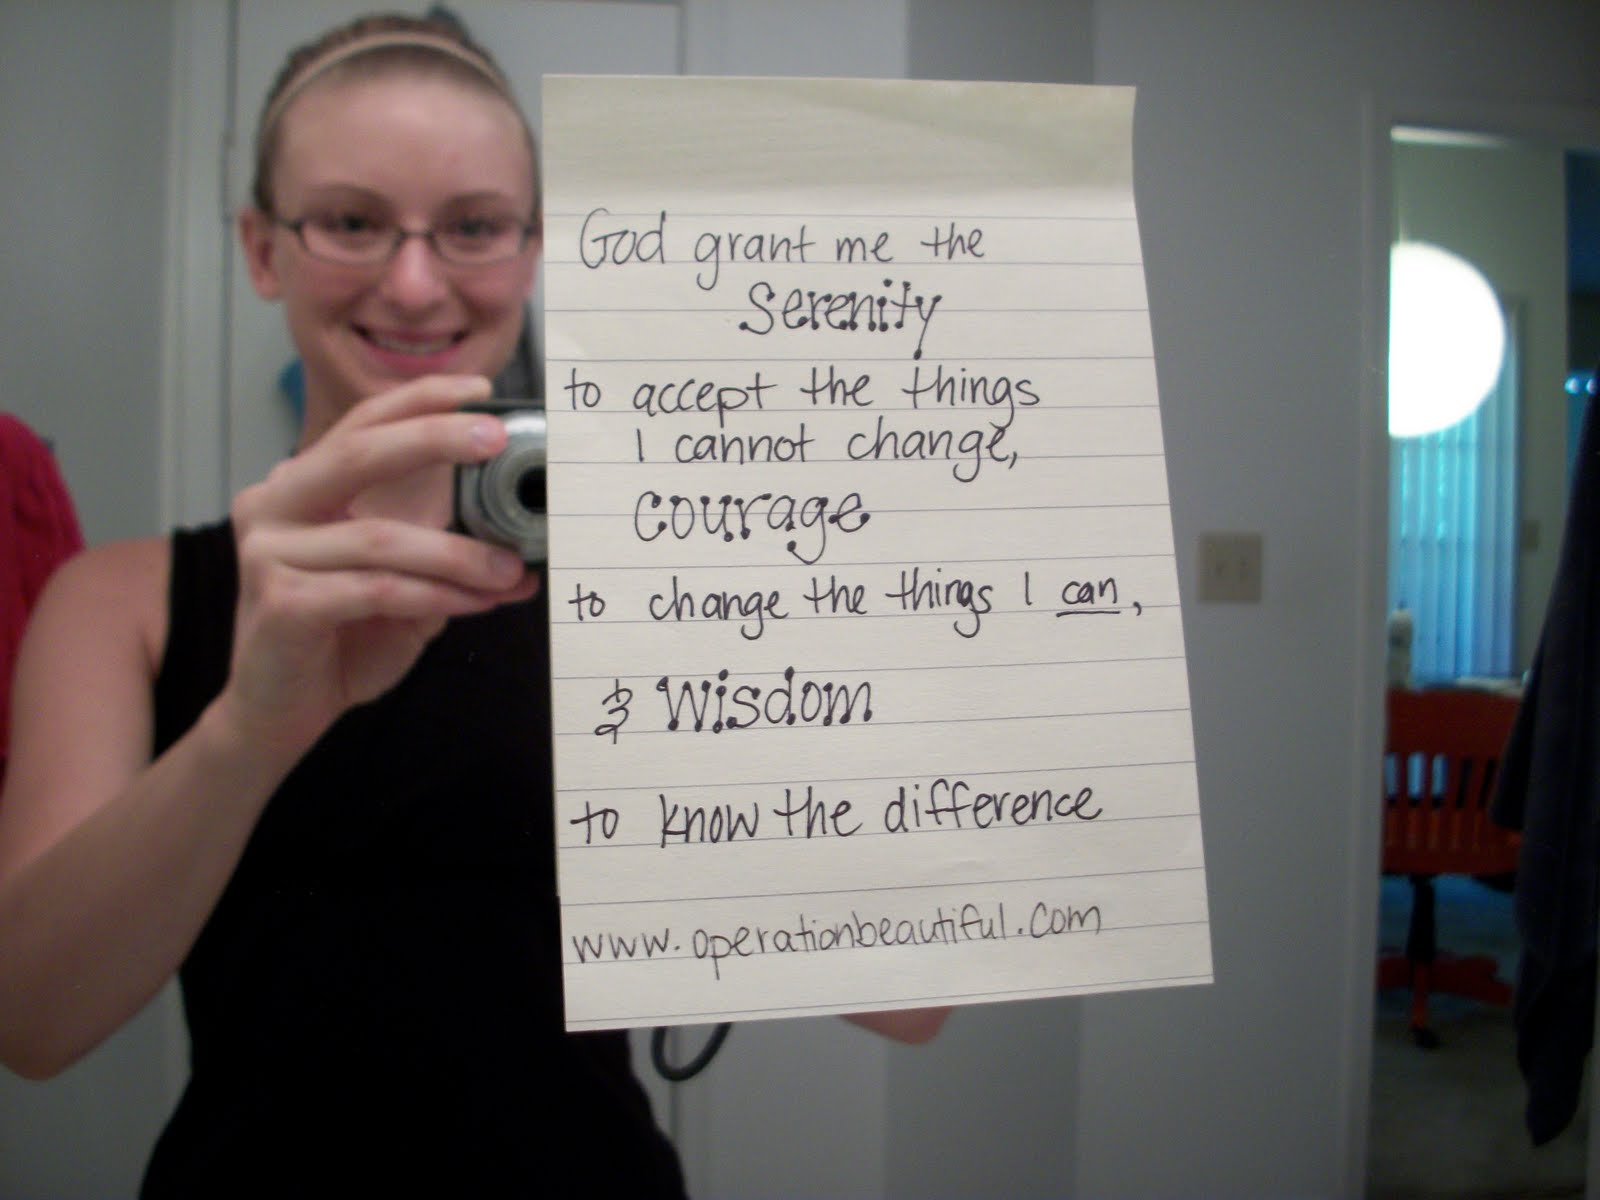 God grant me the
Serenity
to accept the things
I cannot change,
courage
to change the things I can,
& Wisdom
to know the difference
www.operationbeautiful.com